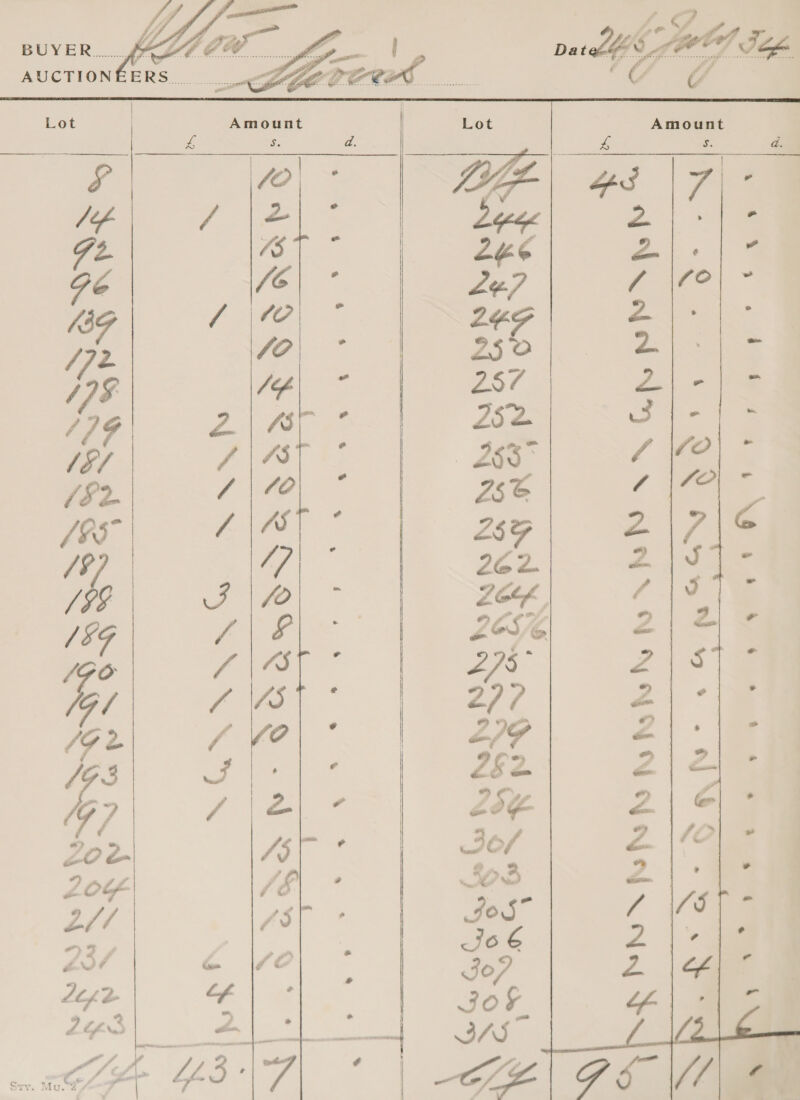 BUYER
Date 24 & 5 July 34
AUCTIONEERS
Lot Amount Lot Amount
£ s. d. £ s. d.
8 10 - B/F 43 7 -
14 1 2 - 244 2 - -
92 15 - 246 2 - -
96 16 - 247 1 10 -
139 1 10 - 249 2 - -
172 10 - 250 2 - -
178 14 - 257 2 - -
179 2 15 - 252 3 - -
181 1 15 - 253 1 10 -
182 1 10 - 256 1 10 -
185 1 15 - 259 2 7 6
187 17 - 262 2 5 -
188 3 10 - 264 1 5 -
189 1 8 - 265/6 2 2 -
190 1 15 - 275 2 5 -
191 1 15 - 277 2 - -
192 1 10 - 279 2 - -
193 3 - - 282 2 2 -
197 1 2 - 284 2 6 -
202 15 - 301 2 10 -
204 18 - 303 2 - -
211 15 - 305 1 15 -
231 6 10 - 306 2 - -
242 4 - - 307 2 4 -
243 2 - - 308 4 - -
315 1 12 6
C/F 43 - 7 - C/F 95 11 -